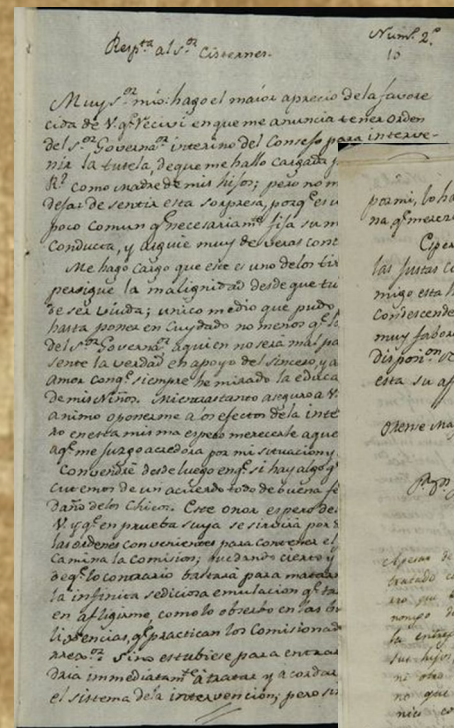 Resp.ta al S.or Cisternes.
Num.o 2.o
15
Muy S.or mio: hago el maior aprecio de la favore
cida de V. q.e reciví en que me anuncia tener orden
del S.or Governa.or interino del Consejo para interve-
nir la tutela, de que me hallo cargada p
R.l como madre de mis hijos; pero no m
dejar de sentir esta sorpresa, porq.e es u
poco comun q.e necesariam.te fija su m
conducta, y arguie muy de veras cont
Me hago cargo que este es uno de los tir
persigue la malignidad desde que tu
de ser viuda; unico medio que pudo
hasta poner en Cuydado no menos q.e la
del S.or Governa.or aquien no será mal pa
sente la verdad en apoyo del sincero, y a
amor conq.e siempre he mirado la educa
de mis Niños. Inicrastanto aseguro a V.
animo oponerme a los efectos de la inte
ro en esta misma espero merecerle aque
aq.e me juzgo acredora por mi situacion y
Convendré desde luego enq.e si hay algo q
cutemos de un acuerdo todo de buena fe
daño de los Chicos. Este onor espero de
V. y q.e en prueba suya se servirá por
las ordenes convenientes para contener el
camina la Comision; quedando cierto y
de q.e lo contrario bastará para matar
la infinita sediciosa emulacion q.e ta
en afligirme como lo observo en las
ligencias, q.e practican los Comisionad
Si no estubiese para entrar
dria immediatam.te a tratar y acordar
el sistema de la intervencion; pero si
por mi, lo ha
na, q.e merez
Esper
las justas c
migo esta h
Condescende
muy fabor
Dispon.on
esta su af
Orense Ma
Apesar de
tratado c
la entre
sus hijos
ni otro
no que
nico co